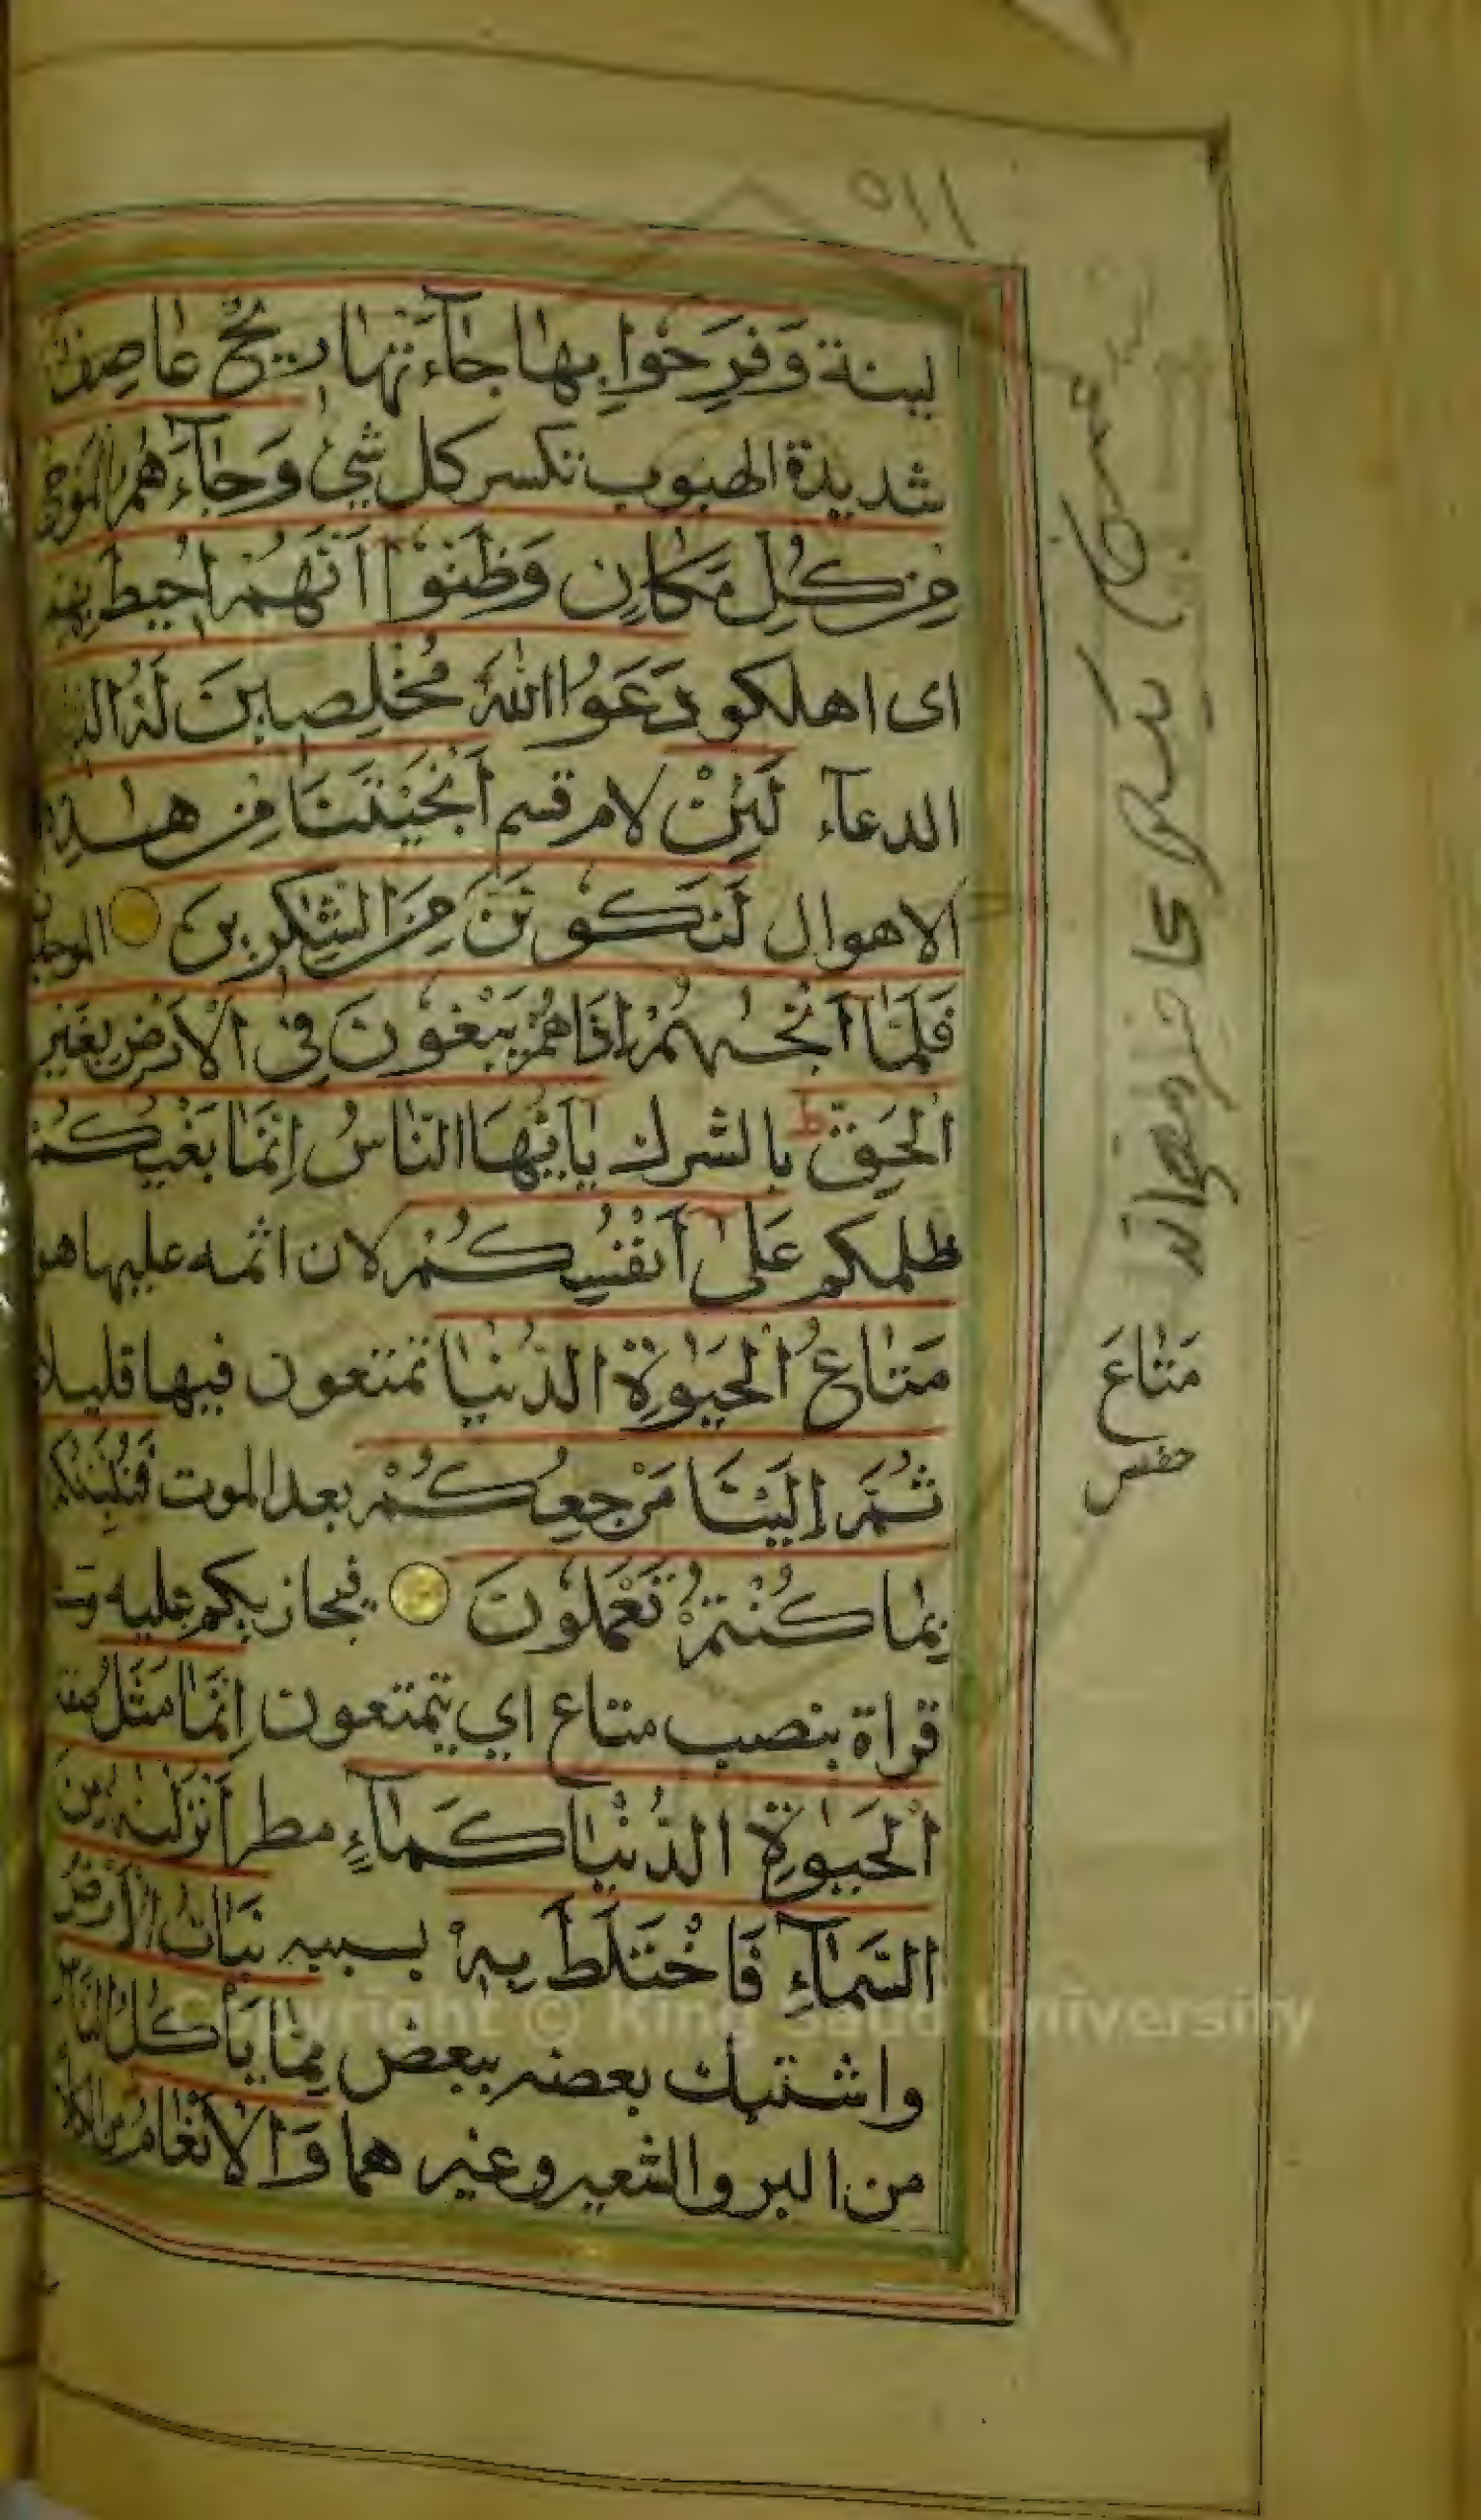 ٥١١
لينة وَفَرِحُوا بِهَا جَآءَتْهَا رِيحٌ عَاصِفٌ
شديدة الهبوب تكسر كل شئ وَجَآءَهُمُ الْمَوْجُ
مِنْ كُلِّ مَكَانٍ وَظَنُّوا أَنَّهُمْ أُحِيطَ بِهِمْ
اى اهلكو دَعَوُا اللهَ مُخْلِصِينَ لَهُ الدِّينَ
الدعآء لَئِنْ لام قسم أَنْجَيْتَنَا مِنْ هٰذِهِ
الاهوال لَنَكُونَنَّ مِنَ الشّٰكِرِينَ
فَلَمَّآ أَنْجٰىهُمْ إِذَا هُمْ يَبْغُونَ فِى الْأَرْضِ بِغَيْرِ
الْحَقِّ ط بالشرك يٰأَيُّهَا النَّاسُ إِنَّمَا بَغْيُكُمْ
ظلمكم عَلٰى أَنْفُسِكُمْ لان اثمه عليها هو
مَتَاعُ الْحَيٰوةِ الدُّنْيَا تمتعون فيها قليلا
ثُمَّ إِلَيْنَا مَرْجِعُكُمْ بعد الموت فَنُنَبِّئُكُمْ
بِمَا كُنْتُمْ تَعْمَلُونَ فيجازيكم عليه وفى
قراة بنصب متاع اي تمتعون إِنَّمَا مَثَلُ صفة
الْحَيٰوةِ الدُّنْيَا كَمَآءٍ مطر أَنْزَلْنٰهُ مِنَ
السَّمَآءِ فَاخْتَلَطَ بِهِ بسببه نَبَاتُ الْأَرْضِ
واشتبك بعضه ببعض مِمَّا يَأْكُلُ النَّاسُ
من البر والشعير وغير هما وَالْأَنْعَامُ من الكلا
مَتَاعَ
حفص
Copyright © King Saud University